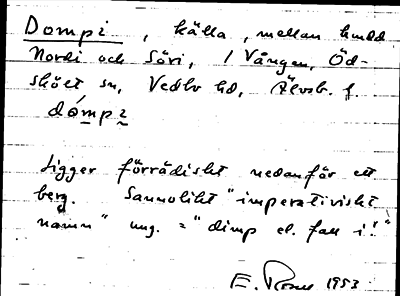 Dompi, källa, mellan hudd
Nordi och Söri, i Vången, Öd-
skölt sn, Vedbo hd, Älvsb. f.
dómpi
Ligger förrädiskt nedanför ett
berg. Sannolikt "imperativiskt
namn" ung. = "dimp el. fall i!"
E. 1953